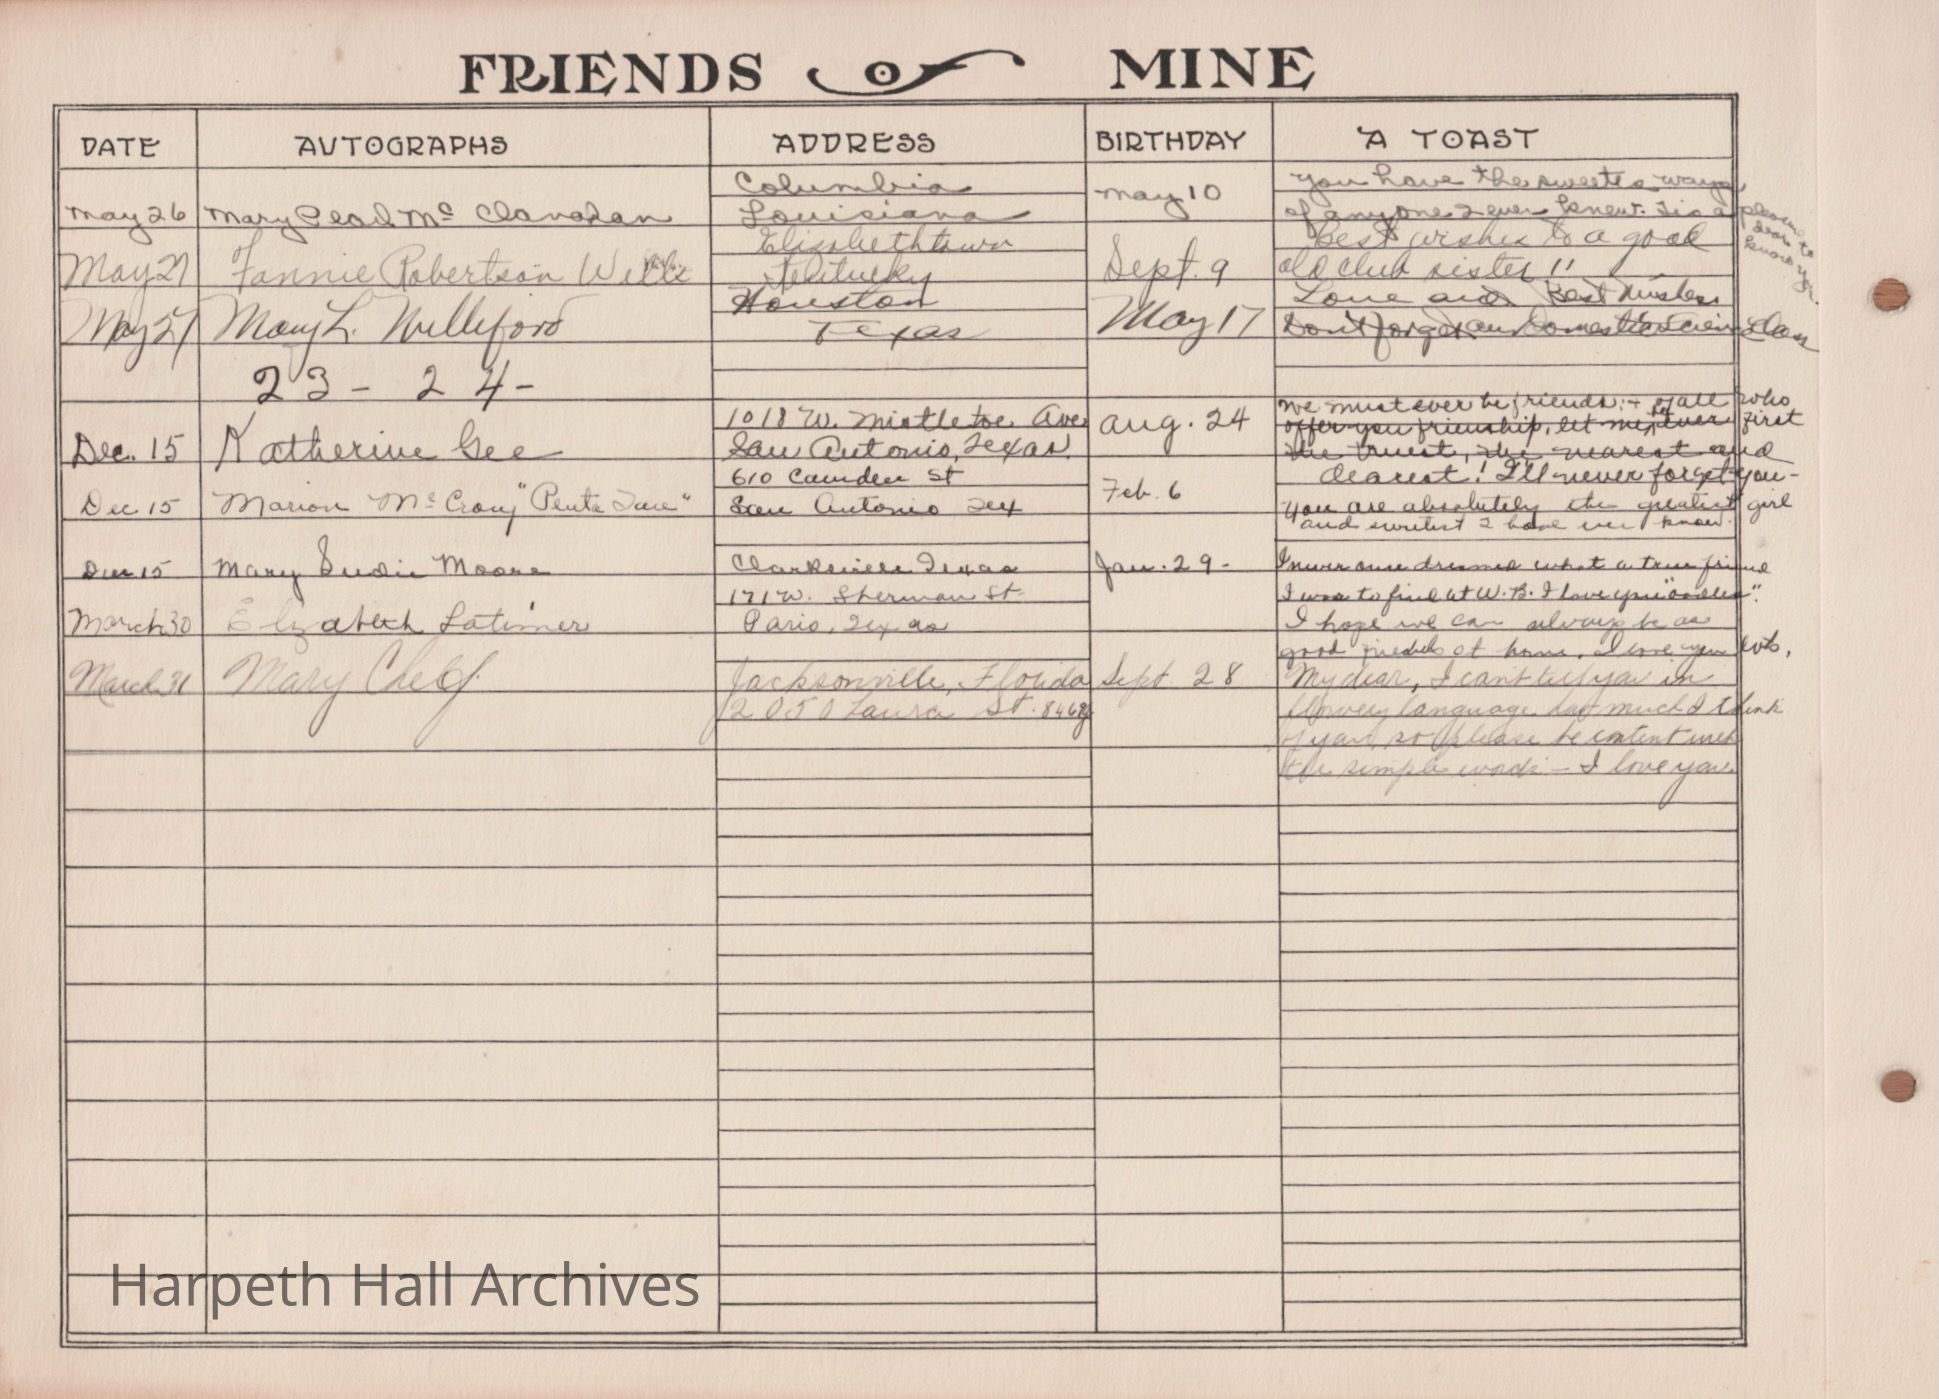 FRIENDS OF MINE
DATE AUTOGRAPHS ADDRESS BIRTHDAY A TOAST
May 26 Mary McClanahan Columbia Louisiana May 10 You have the sweetest ways
of anyone I ever knew. Tis a pleasure to know you
May 27 Fannie Robertson Elizabethtown Kentucky Sept. 9 Best wishes to a good
old club sister!!
May 27 Mary L. Williford Houston Texas May 17 Love and Best Wishes
Don't forget our Domestic Science Class
23 - 24 -
Dec. 15 Katherine Gee 1018 W. Mistletoe Ave San Antonio, Texas. Aug. 24 We must ever be friends:- of all who
offer you friendship, let me be ever first
the truest, the nearest and
dearest! I'll never forget you-
Dec 15 Marion McCrory 610 Camden St San Antonio Tex Feb. 6 You are absolutely the greatest girl
and sweetest I have ever known.
Dec 15 Mary Sudie Moore Clarksville Texas Jan. 29 - I never once dreamed what a true friend
I was to find at W. B. I love you "oodles".
March 30 Elizabeth Latimer 171 W. Sherman St. Paris, Texas I hope we can always be as
good friends at home. I love you lots.
March 31 Mary Jacksonville, Florida 2050 Laura St. Sept. 28 My dear, I can't tell you in
flowery language how much I think
of you, so please be content with
the simple words - I love you.
Harpeth Hall Archives